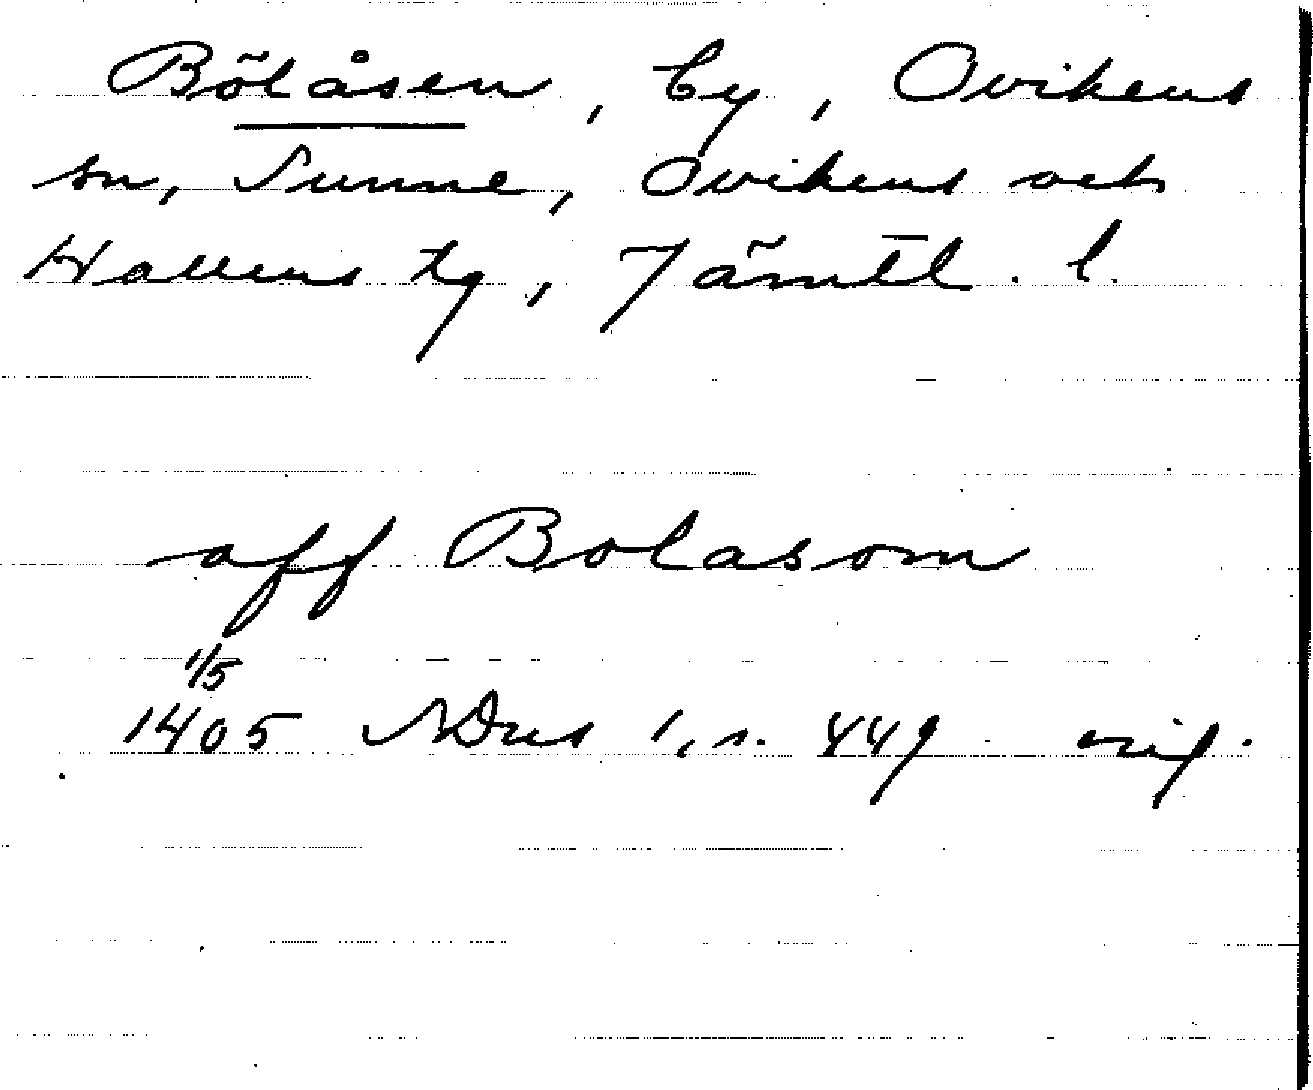 Bölåsen, by, Ovikens
sn, Sunne, Ovikens och
Hallens tg, Jämtl. l.
aff Bolasom
1/5
1405 NDns 1, s. 449 orig.